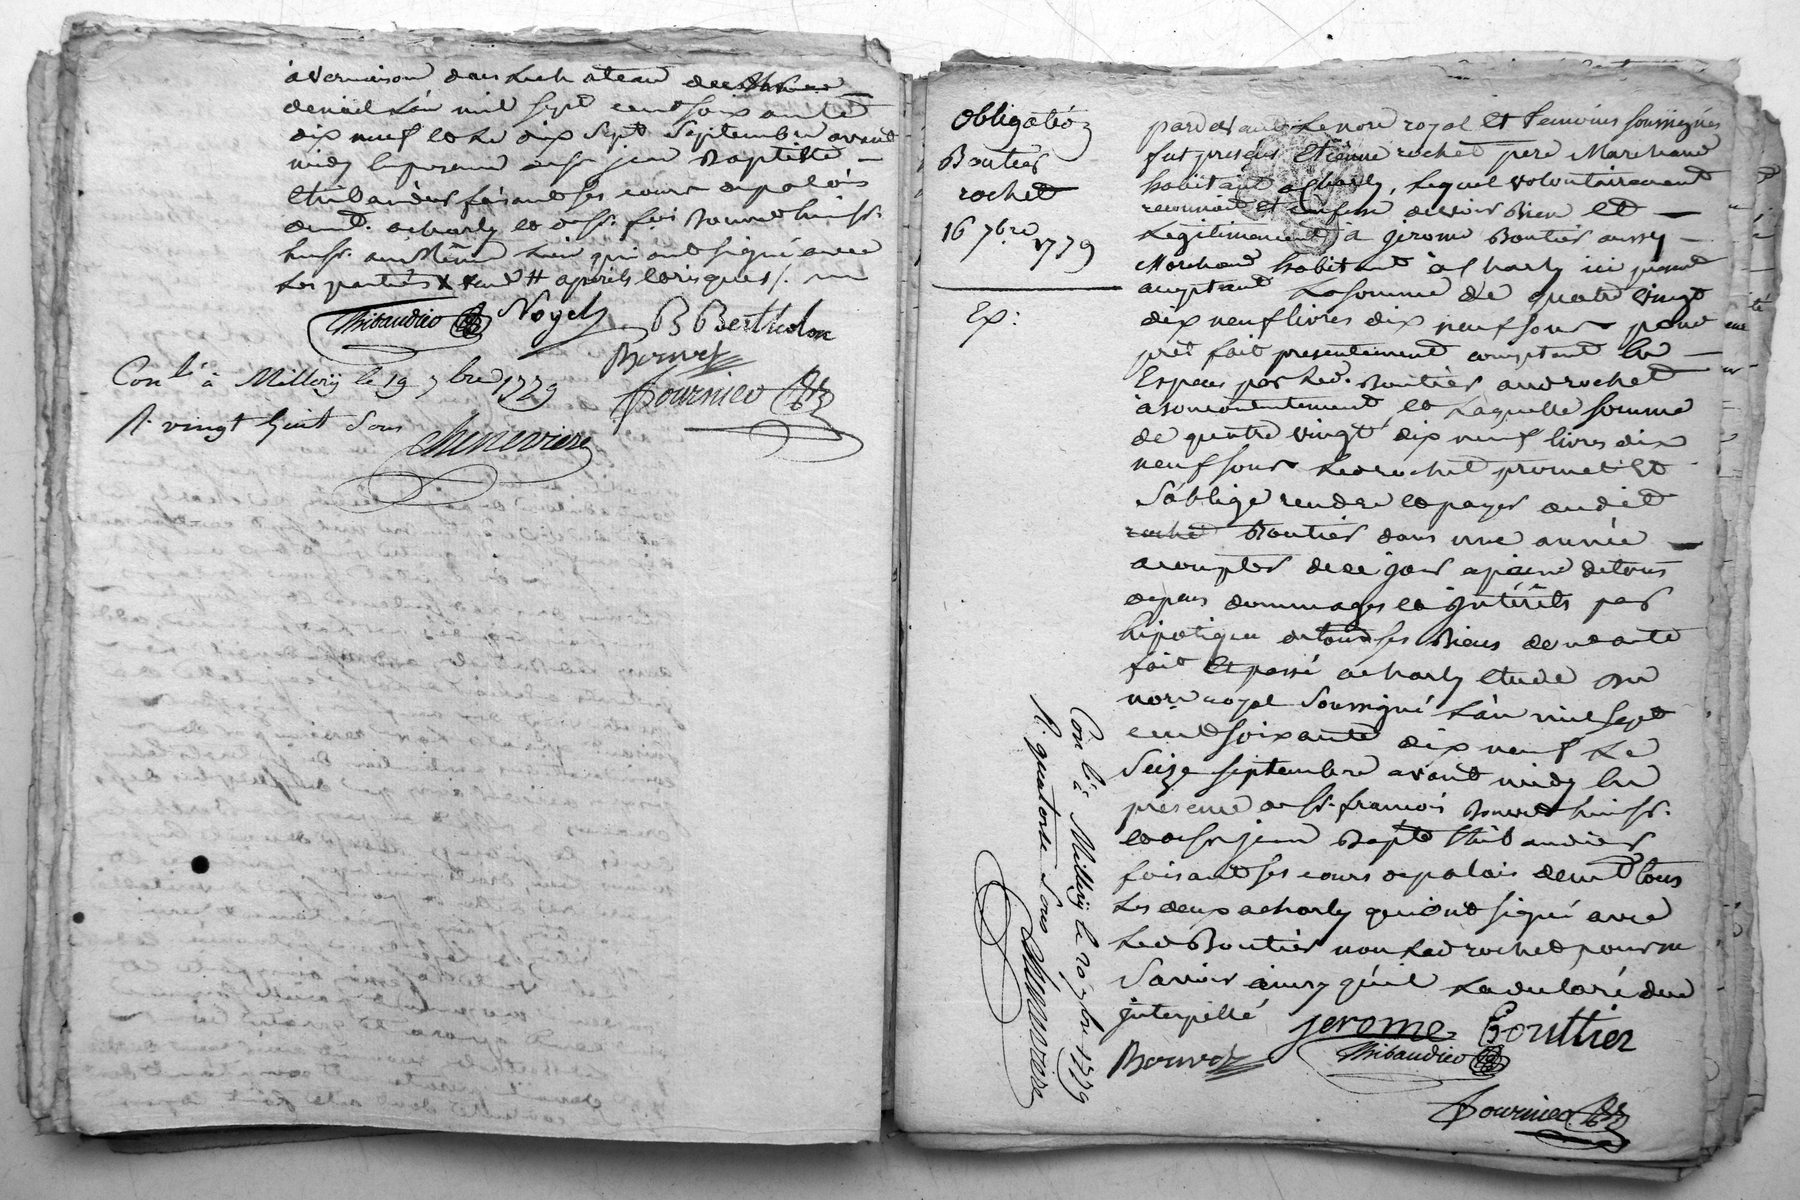 a Vernaison dans le chateau
l'an mil sept cent soixante
dix neuf et le dix sept septembre avant
midy En presence de sr jean Baptiste
thibaudier faisant ses cours de palais
demt. a charly et de sr. fois Bonnet huissr.
qui ont signé avec
Les parties
Thibaudier Noyel B Bertholon
Bonnet
Conlé. à Millery le 19 7bre 1779
fournier
R. vingt huit Sous
cheneviere
obligation
Boutier
rochet
16 7bre 1779
Ex:
pardevant Le nore royal et temoins soussignés
fut present Etienne rochet pere Marchand
habitant a charly, Lequel volontairement
reconnoit et confesse devoir Bien et
Legitimement a jerome Boutier aussy
Marchand habitant a charly ici present
acceptant La somme de quatre vingt
dix neuf livres dix neuf sous pour
pret fait presentement comptant En
Especes par led. Boutier aud rochet
a son contentement et Laquelle somme
de quatre vingt dix neuf livres dix
neuf sous Led rochet promet et
s'oblige rendre et payer audit
roche Boutier dans une année
a compter de ce jour a peine de tous
depens dommages et Intérêts par
hipotique de tous ses Biens dont acte
fait et passé a charly etude du
nore royal soussigné L'an mil sept
cent soixante dix neuf Le
Seize septembre avant midy En
presence de sr. francois Bonnet huissr.
et de sr jean Bapte thibaudier
faisant ses cours de palais demt tous
Les deux a charly qui ont signé avec
Led Boutier non Led rochet pour ne
Savoir ainsy qu'il La declaré de ce
Interpellé
jerome Bouttier
Bonnet Thibaudier
fournier
Conlé à Millery le 20 7bre 1779
R. quatorze Sous cheneviere